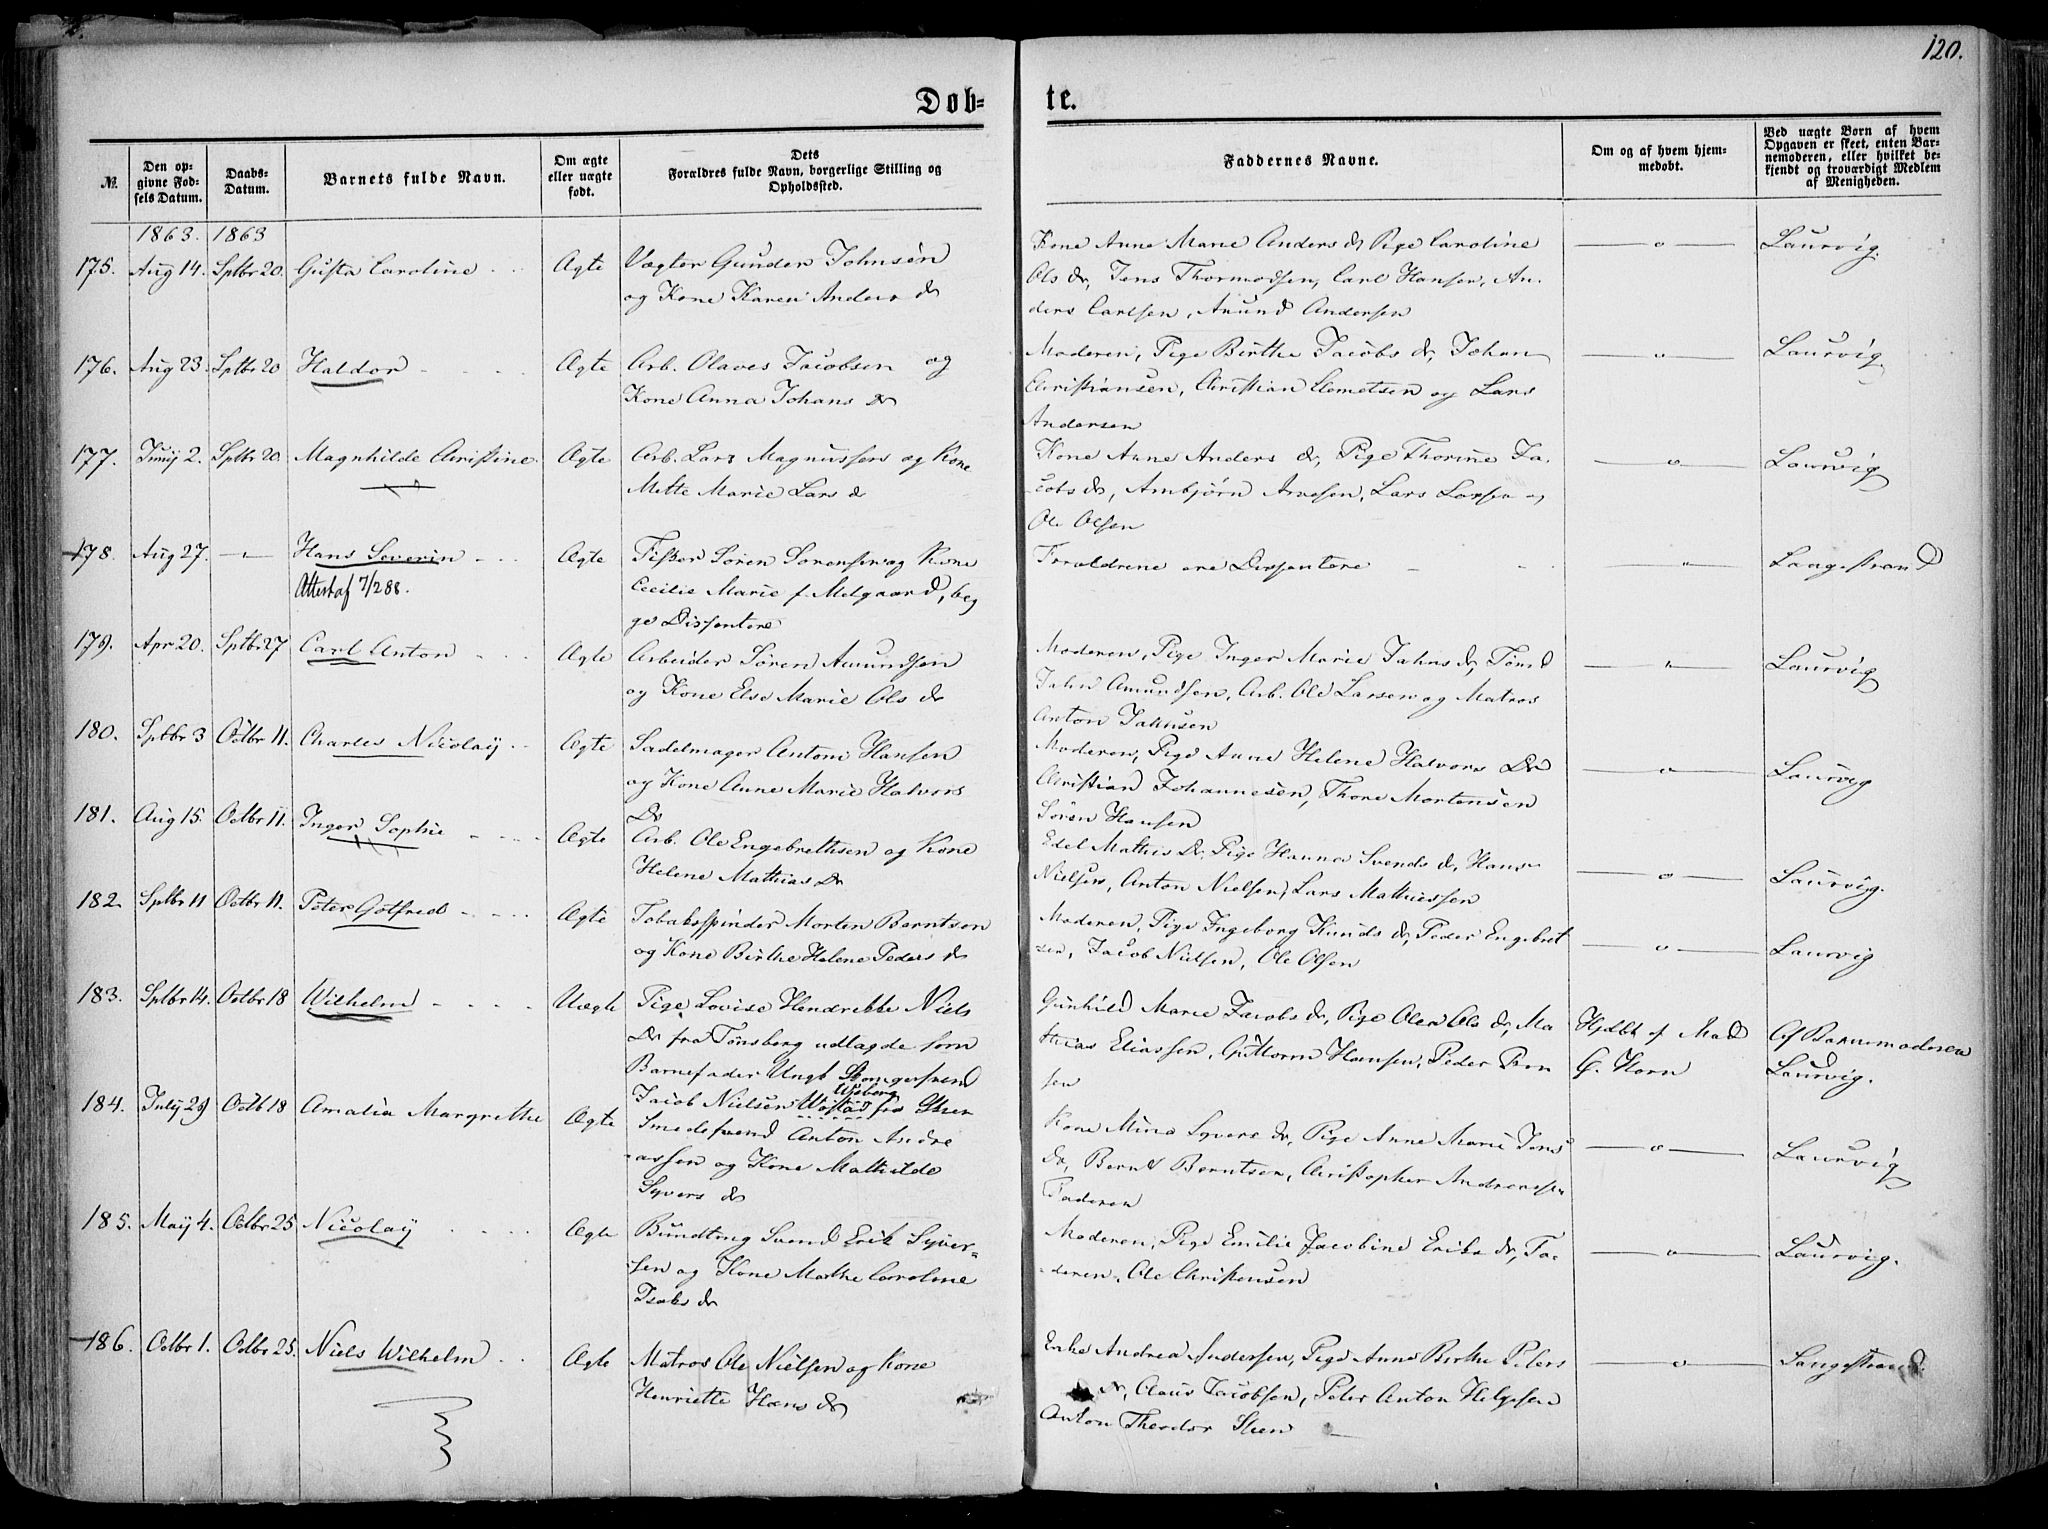 120.
Døb=
te.
№.
Den op-
givne Fød-
sels Datum.
Daabs-
Datum.
Barnets fulde Navn.
Om ægte
eller uægte
født.
Dets
Forældres fulde Navn, borgerlige Stilling og
Opholdssted.
Faddernes Navne.
Om og af hvem hjem-
medøbt.
Ved uægte Børn af hvem
Opgaven er skeet, enten Bar-
nemoderen, eller hvilket be-
kjendt og troværdigt Medlem
af Menigheden.
1863. 1863
175. Aug 14. Sptbr 20. Gusta Caroline Ægte Vægter Gunder Johnsen
og Kone Karen Anders dr
Kone Anne Marie Anders dr Pige Caroline
Ols dr, Jens Thormodsen, Carl Hansen, An-
ders Carlsen, Amund Andersen
Laurvig.
176. Aug 23. Sptbr 20 Haldor Ægte Arb. Olaves Jacobsen og
Kone Anna Johans dr
Moderen, Pige Birthe Jacobs dr, Johan
Christiansen, Christian Clemetsen og Lars
Andersen
Laurvig
177. Junij 2. Sptbr 20. Magnhilde Christine Ægte Arb. Lars Magnussen og Kone
Mette Marie Lars dr
Kone Anne Anders dr, Pige Thorine Ja-
cobs dr, Arnbjørn Arnesen, Lars Larsen og
Ole Olsen
Laurvig
178. Aug 27. Hans Severin Ægte Fisker Søren Sørensen og Kone
Attest af 7/2 88.
Cecilie Marie f. Melgaard, beg
ge Dissentere
Forældrene ere Dissentere
Langestrand
179. Apr 20. Sptbr 27 Carl Anton Ægte Arbeider Søren Amundsen
og Kone Else Marie Ols dr
Moderen, Pige Inger Marie Jahns dr, Tømd
Jahn Amundsen, Arb. Ole Larsen og Matros
Anton Jahnsen
Laurvig
180. Sptbr 3 Octbr 11. Charles Nicolaÿ Ægte Sadelmager Anton Hansen
og Kone Anne Marie Halvors
Dr
Moderen, Pige Anne Helene Halvors Dr
Christian Johannesen, Thore Mortensen
Søren Hansen
Laurvig
181. Aug 15. Octbr 11. Inger Sophie Ægte Arb. Ole Engebrethsen og Kone
Helene Mathias Dr
Edel Mathis Dr, Pige Hanna Svends dr, Hans
Nielsen, Anton Nielsen, Lars Mathiessen
Laurvig.
182. Sptbr 11 Octbr 11. Peter Gotfred Ægte Tobaksspinder Morten Berntsen
og Kone Birthe Helene Peders dr
Moderen, Pige Ingeborg Knuds dr, Peder Engebret
sen, Jacob Nielsen, Ole Olsen
Laurvig
183. Sptbr 14. Octbr 18 Wilhelm Uægte Pige Lovise Hendrikke Niels
Dr fra Tønsberg udlagde som
Barnefader Ungk
Jacob Nielsen fra
Gunhild Marie Jacobs dr, Pige Olea Ols dr, Ma
thias Eliassen, Guttorm Hansen, Peder
sen
Hjdbt af Mad
Horn
Af Barnemoderen
Laurvig.
184. Julij 29 Octb 18 Amalia Margrethe Ægte Smedesvend Anton Andre
assen og Kone Mathilde
Syvers dr
Kone Mina Syvers dr, Pige Anne Marie Jens
dr, Bernt Berntsen, Christopher Andreassen
Faderen
Laurvig
185. Maij 4. Octbr 25 Nicolaÿ Ægte Bundtmg Svend Erik Syver-
sen og Kone Marthe Caroline
Isaks dr
Moderen, Pige Emilie Jacobine Eriks dr, Fa-
deren, Ole Christensen
Laurvig.
186. Octbr 1. Octbr 25. Niels Wilhelm Ægte Matros Ole Nielsen og Kone
Henriette Hans dr
Enke Andrea Andersen, Pige Anne Birthe Peters
dr, Claus Jacobsen, Peter Anton Helgesen
Anton Theodor Steen
Langestrand.